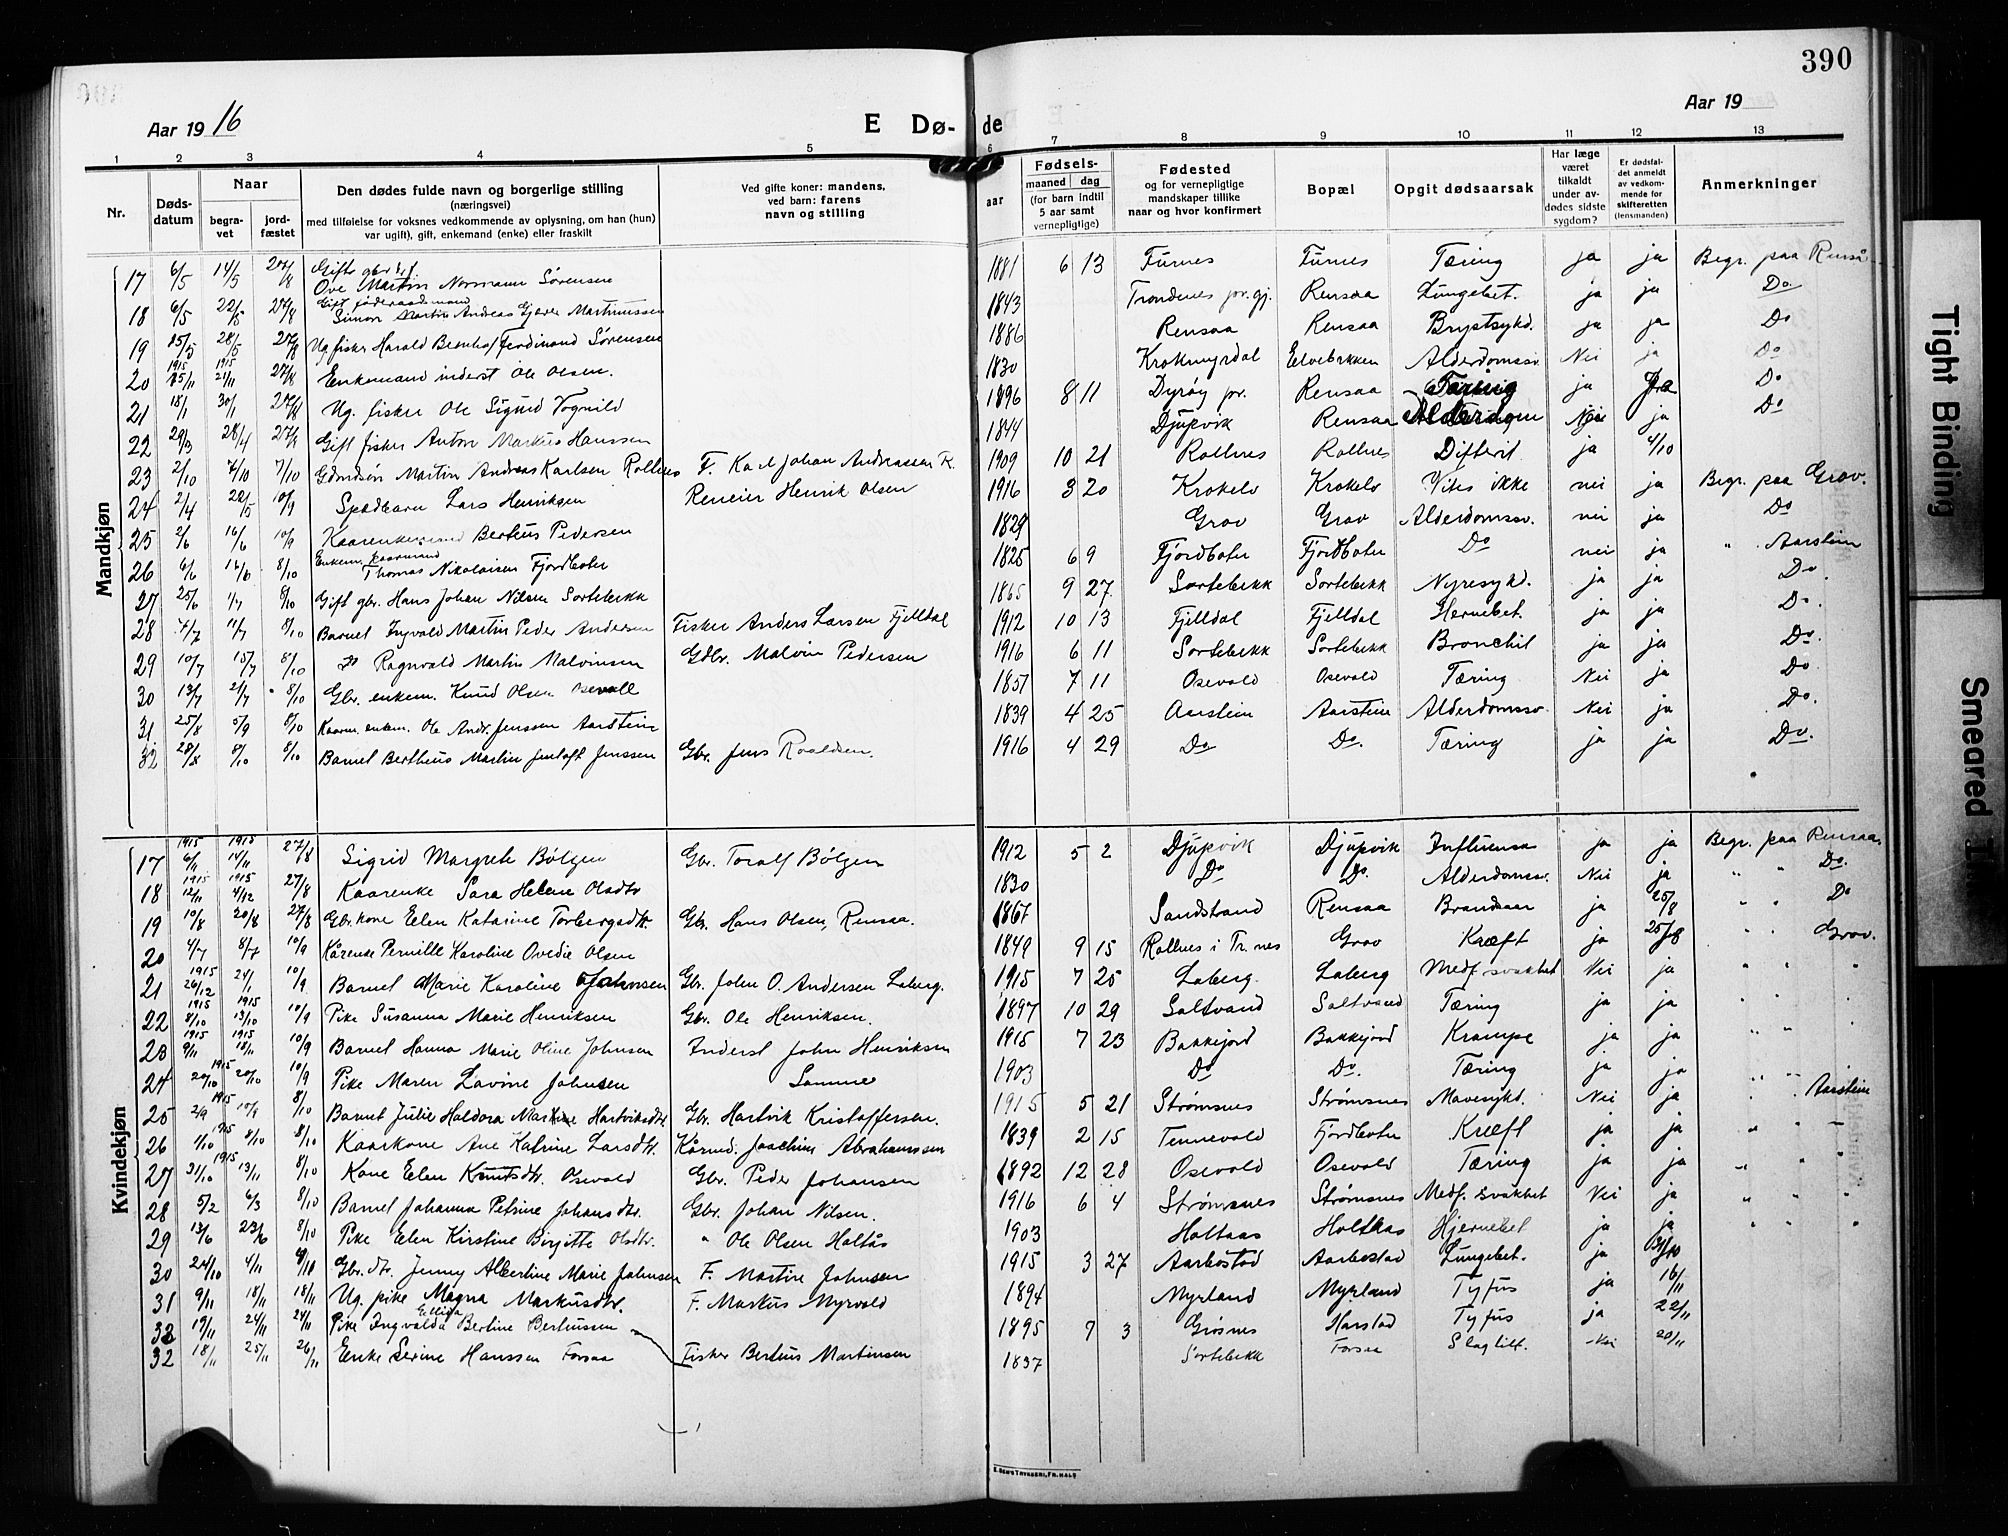 390
Aar 1916 E Dø- de Aar 19
1 2 3 4 5 6 7 8 9 10 11 12 13
Nr. Døds-datum Naar begra-vet jord-fæstet Den dødes fulde navn og borgerlige stilling (næringsvei) med tilføielse for voksnes vedkommende av oplysning, om han (hun) var ugift), gift, enkemand (enke) eller fraskilt Ved gifte koner: mandens, ved barn: farens navn og stilling aar Fødsels- maaned dag (for barn indtil 5 aar samt vernepligtige) Fødested og for vernepligtige mandskaper tillike naar og hvor konfirmert Bopæl Opgit dødsaarsak Har læge været tilkaldt under av-dødes sidste sygdom? Er dødsfal-det anmeldt av vedkom-mende for skifteretten (lensmanden) Anmerkninger
Mandkjøn
17 6/5 14/5 27/8 Gift gbr. Ove Martin Normann Sørensen 1881 6 13 Furnes Furnes Tæring ja ja Begr. paa Renså
18 6/5 22/5 27/8 Gift føderaadsmand Simon Martin Andreas Gjæver Martinussen 1843 Trondenes pr.gj. Rensaa Lungebet. ja ja Do
19 15/5 28/5 27/8 Ug. fisker Harald Bernhof Ferdinand Sørensen 1886 Rensaa Rensaa Brystsykd. ja ja Do
20 1915 15/11 1915 21/11 27/8 Enkemand inderst Ole Olsen. 1830 Krokmyrdal Elvebakken Alderdomssv. Nei ja Do
21 18/1 30/1 27/8 Ug. fisker Ole Sigurd Vognild 1896 8 11 Dyrøy pr. Rensaa Tæring ja Ja Do
22 29/3 28/4 27/8 Gift fisker Anton Markus Hanssen 1844 Djupvik Rensaa Nei ja Do
23 2/10 7/10 7/10 Gdmdsøn Martin Andreas Karlsen Rollnes F. Karl Johan Andreassen R. 1909 10 21 Rollnes Rollnes Difterit ja 4/10
24 2/4 28/5 10/9 Spædbarn Lars Henriksen Reneier Henrik Olsen 1916 3 20 Krokelv Krokelv Vites ikke nei ja Begr. paa Grav.
25 2/6 16/6 10/9 Kaarenkemand Berteus Pedersen 1829 Grav Grav Alderdomssv. nei ja Do
26 6/6 16/6 8/10 Enkem. kaarmand Thomas Nikolaisen Fjordboten 1825 6 9 Fjordboten Fjordboten Do nei ja " Aarstein
27 25/6 1/7 8/10 Gift gbr. Hans Johan Nilsen Sortebekk 1865 9 27 Sortebekk Sortebekk Nyresykd. ja ja Do.
28 4/7 11/7 8/10 Barnet Ingvald Martin Peder Andersen Fisker Anders Larsen Fjelldal 1912 10 13 Fjelldal Fjelldal Hernebet. ja ja Do.
29 10/7 15/7 8/10 Do Ragnvald Martin Malvinsen Gdbr. Malvin Pedersen 1916 6 11 Sortebekk Sortebekk Bronchit ja ja Do.
30 13/7 21/7 8/10 Gbr. enkem. Knud Olsen Osevoll 1851 7 11 Osevold Osevold Tæring Nei ja Do
31. 25/8 5/9 8/10 Kaarm. enkem. Ole Andr. Jenssen Aarstein 1839 4 25 Aarstein Aarstein Alderdomssv. Nei ja Do.
32 28/8 8/10 8/10 Barnet Bertheus Martin Jentoft Jenssen Gbr. Jens Roaldsen. 1916 4 29 Do Do. Tæring ja ja Do.
Kvindekjøn
17 1915 6/11 1915 14/11 27/8 Sigrid Margrete Bølgen Gbr. Toralf Bølgen 1912 5 2 Djupvik Djupvik Influensa ja ja Begr. paa Rensaa
18 1915 12/11 1915 4/12 27/8 Kaarenke Sara Helene Olsdtr 1830 Do Do. Alderdomssv. Nei ja " " Do.
19 10/8 20/8 27/8 Gbr.kone Elen Katarine Torbergsdtr. Gbr. Hans Olsen, Rensaa. 1867 Sandstrand Rensaa Brandsaar ja 25/8 " " Do
20 4/7 8/7 10/9 Kårenke Pernille Karoline Ovedie Olsen 1849 9 15 Rollnes i Tr.nes Grav Kræft ja 25/8 " " Grav.
21 1915 26/12 24/1 10/9 Barnet Marie Karoline Johansen Gbr. John O. Andersen Laberg. 1915 7 25 Laberg. Laberg Medf. svakhet Nei ja " " "
22 1915 8/10 1915 13/10 10/9 Pike Susanna Marie Henriksen Gbr. Ole Henriksen. 1897 10 29 Saltvand Saltvand Tæring ja ja " " "
23 1915 9/11 1915 18/11 10/9 Barnet Hanna Marie Oline Johnsen Inderst John Henriksen 1915 7 23 Bakkejord Bakkejord Krampe ja ja " " "
24 20/10 1915 20/10 10/9 Pike Maren Lavine Johnsen Samme 1903 Do Do. Tæring ja ja " "
25 2/9 1915 10/9 8/10 Barnet Julie Haldora Martine Hartviksdtr Gbr. Hartvik Kristoffersen. 1915 5 21 Strømsnes Strømsnes Mavesykd. Nei ja " " Aarstein
26 1/10 1915 8/10 8/10 Kaarkone Ane Katrine Larsdtr. Kårmd. Joachim Abrahamssen 1839 2 15 Tennevold Fjordboten Kræft ja ja " " "
27 31/10 1915 13/11 8/10 Kone Elen Knutsdtr. Osevold Gbr. Peder Johansen 1892 12 28 Osevold Osevold Tæring ja ja " " "
28 5/2 6/3 8/10 Barnet Johanna Petrine Johansdtr. Gbr. Johan Nilsen. 1916 6 4 Strømsnes Strømsnes Medf. svakhet Nei ja " " "
29 13/6 23/6 8/10 Pike Elen Kirstine Birgitte Olsdtr. " Ole Olsen Holtås 1903 Holtaas Holtkas Hjernebet ja ja " "
30 24/10 4/11 Gbr.dtr. Jenny Albertine Marie Johnsen F. Martin Johnsen 1915 3 27 Aarbostad Aarbostad Lungebet. ja 31/10
31 9/11 18/11 18/11 Ug. pike Magna Markusdtr. F. Markus Myrvold 1894 Myrland Myrland Tyfus ja 16/11
32 19/11 24/11 24/11 Pike Ingvalda Ellida Bertine Berteussen 1895 7 3 Grøsnes Harstad Tyfus ja 22/11
32 18/11 25/11 26/11 Enke Serine Hanssen Forsaa Fisker Berteus Martinsen 1837 Sortebekk Forsaa Slagtilf. Nei 20/11
E. SEM'S TRYKKERI, FR.HALD
Tight Binding
Smeared